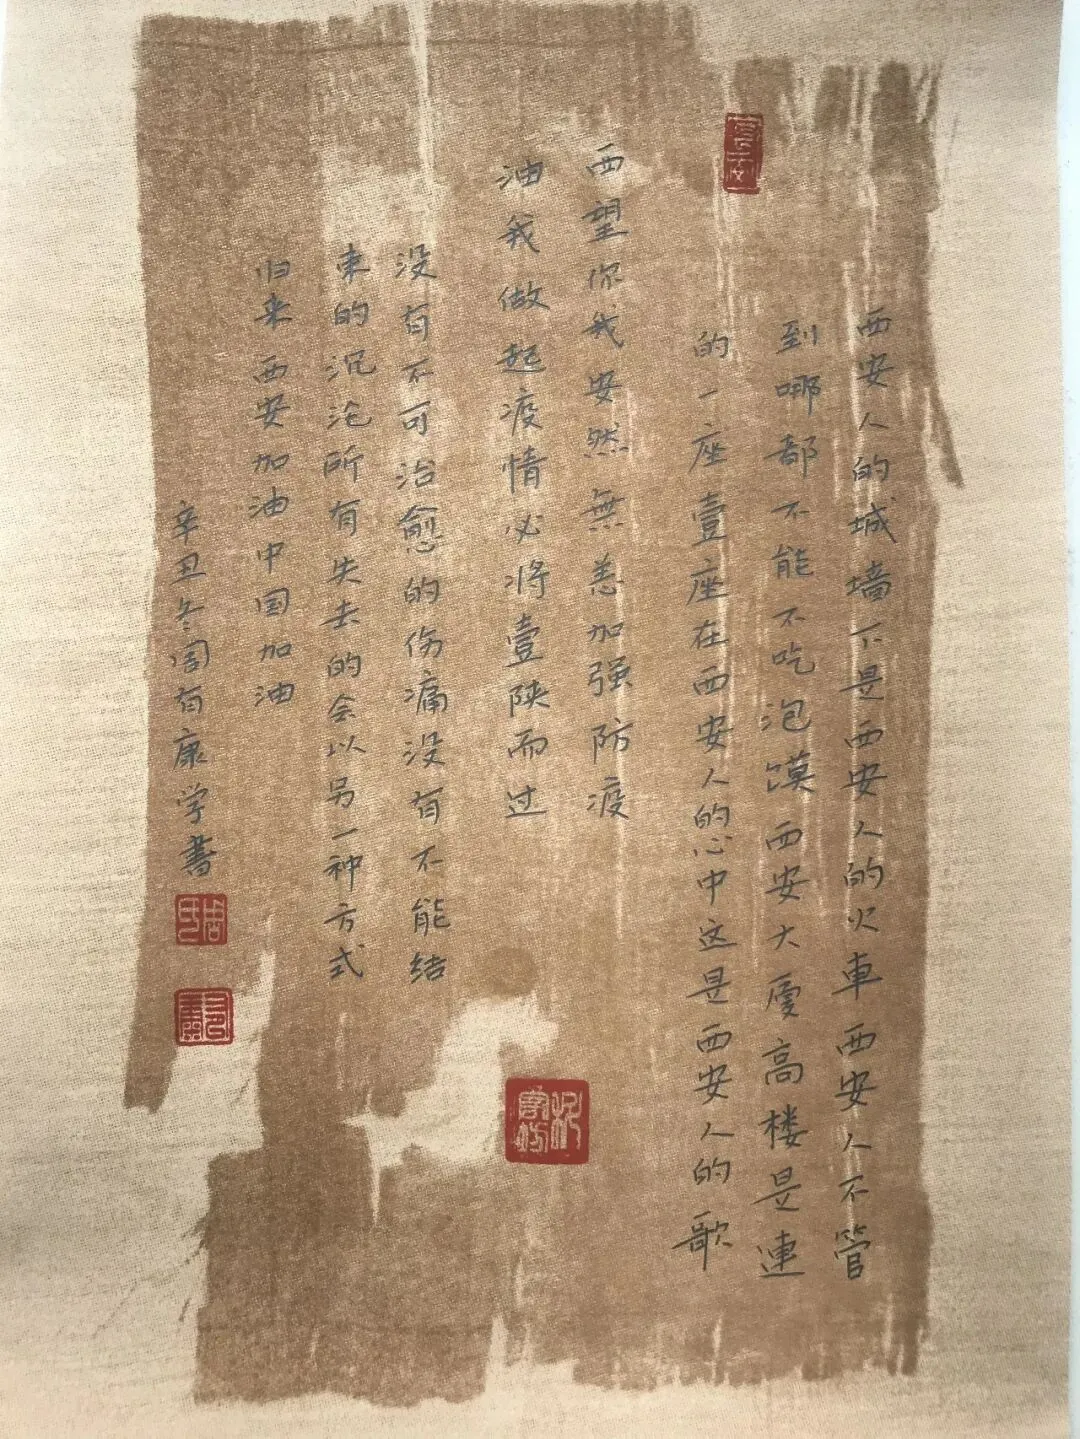 西安人的城墙下是西安人的火車西安人不管
到哪都不能不吃泡馍西安大厦高楼是連
的一座壹座在西安人的心中这是西安人的歌
西望你我安然無恙加强防疫
油我做起疫情必将壹陕而过
没有不可治愈的伤痛没有不能结
束的沉沦所有失去的会以另一种方式
归来西安加油中国加油
辛丑冬周有康学書